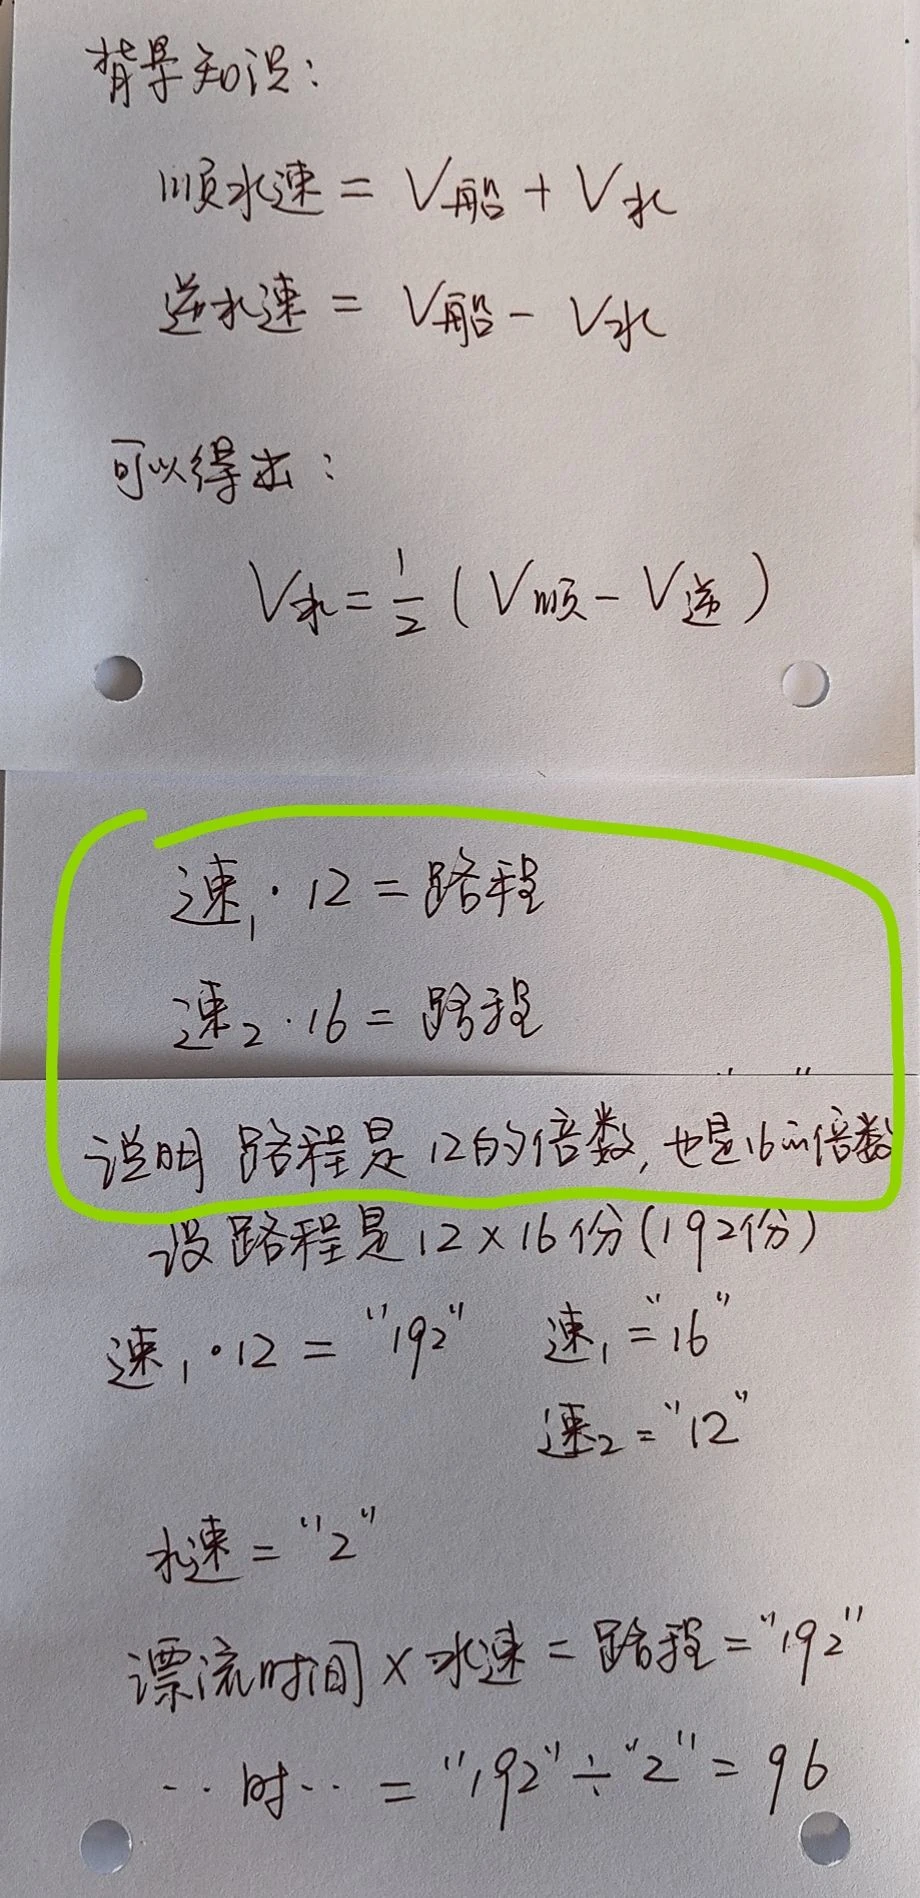 背景知识：
顺水速 = V船 + V水
逆水速 = V船 - V水
可以得出：
V水 = 1/2 (V顺 - V逆)
速₁ · 12 = 路程
速₂ · 16 = 路程
说明 路程是12的倍数, 也是16的倍数
设路程是12×16份(192份)
速₁ · 12 = "192" 速₁ = "16"
速₂ = "12"
水速 = "2"
漂流时间 × 水速 = 路程 = "192"
··时·· = "192" ÷ "2" = 96